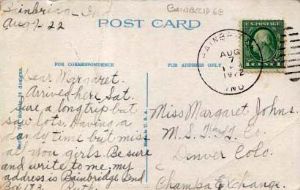 Bainbridge, Ind
Aug 7-22
BAINBRIDGE
POST CARD
FOR CORRESPONDENCE
FOR ADDRESS ONLY
BAINBRIDGE
AUG
7
IND
Dear Margaret.
Arrived here Sat.
Sure a long trip but
saw lots. Having a
dandy time but miss
all you girls. Be sure
and write to me, my
address is Bainbridge Ind
Box 173 Ruth
Miss Margaret Johns
M. S. T. & T. Co.
Denver Colo.
Champa Exchange